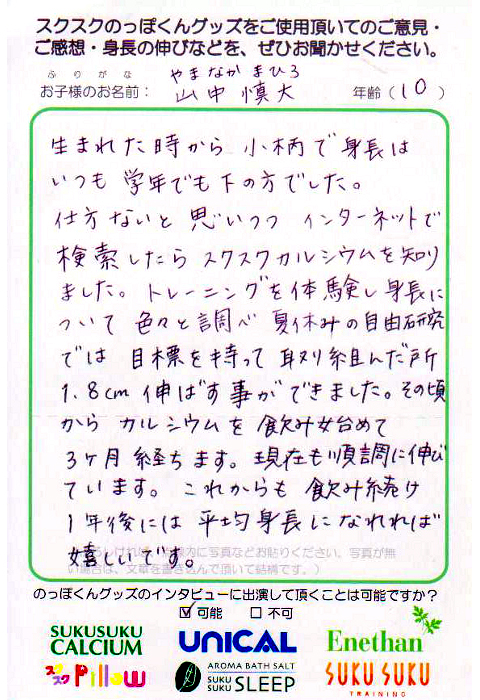 スクスクのっぽくんグッズをご使用頂いてのご意見・
ご感想・身長の伸びなどを、ぜひお聞かせください。
ふりがな やまなか まひろ
お子様のお名前： 山中 慎大 年齢（10）
生まれた時から 小柄で身長は
いつも 学年でも下の方でした。
仕方ないと 思いつつ インターネットで
検索したら スクスクカルシウムを知り
ました。トレーニングを体験し身長に
ついて 色々と調べ 夏休みの自由研究
では 目標を持って 取り組んだ所
1.8cm 伸ばす事ができました。その頃
から カルシウムを 飲み始めて
3ヶ月 経ちます。現在も順調に伸び
ています。これからも 飲み続け
1年後には 平均身長になれれば
嬉しいです。
内に写真などお貼りください。写真が無
い場合は、文章を書き込んで頂いて結構です。）
のっぽくんグッズのインタビューに出演して頂くことは可能ですか？
☑可能 □不可
SUKUSUKU CALCIUM
UNICAL
Enethan
スクスク Pillow
AROMA BATH SALT SUKU SUKU SLEEP
SUKU SUKU TRAINING